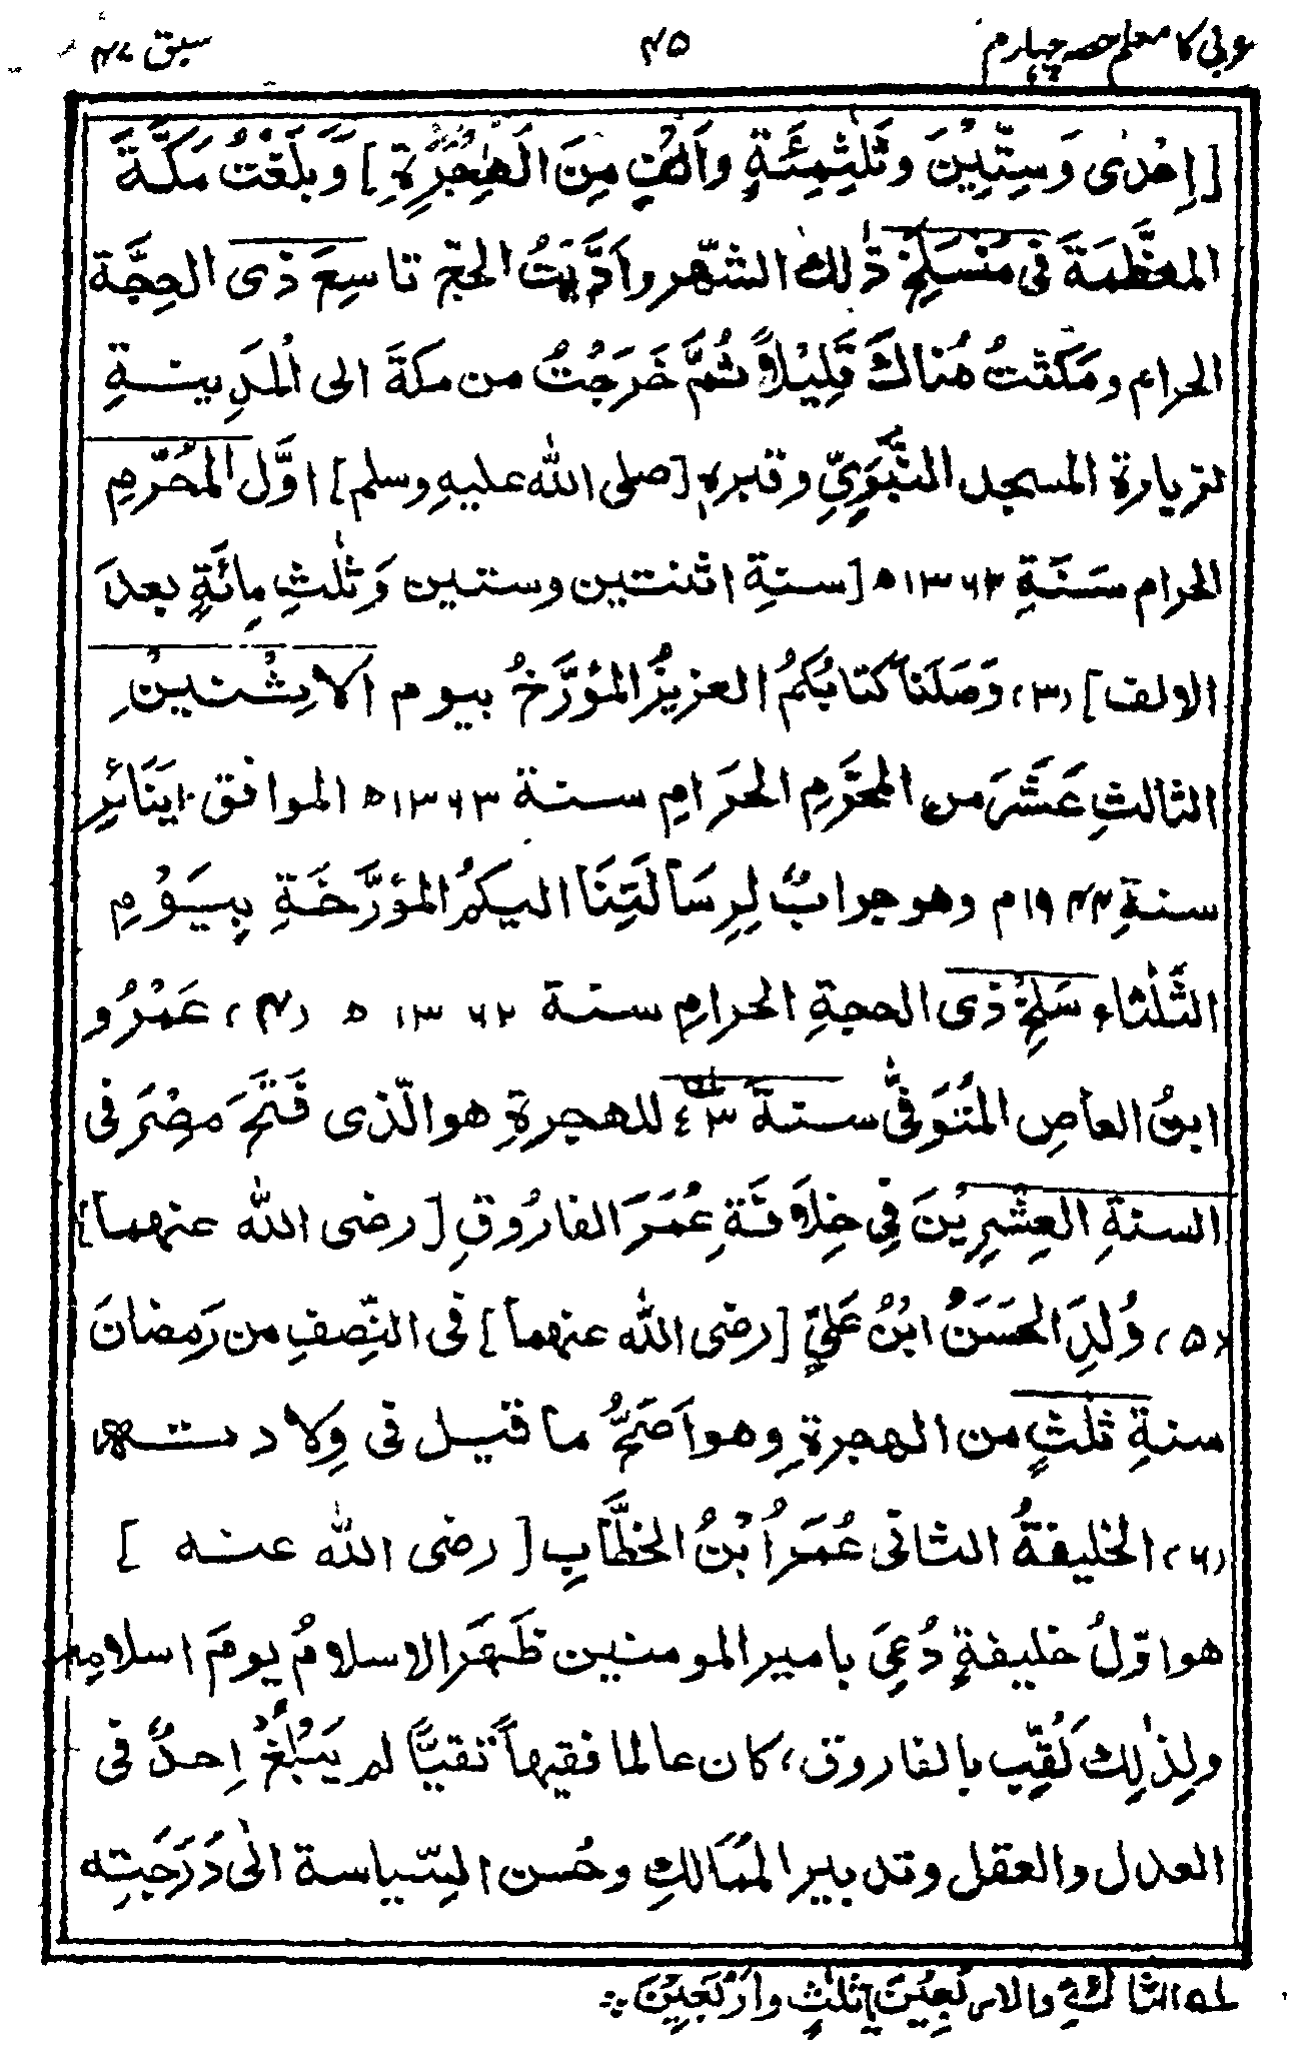 عربی کا معلم حصہ چہارم ۴۵ سبق ۴۷
[اِحْدٰی وَسِتِّیْنَ وثَلٰثِمِئَةٍ واَلْفٍ مِنَ الْهِجْرَةِ] وَبَلَغْتُ مَكَّةَ
المعظَّمَةَ فی مُنْسَلَخِ ذٰلك الشهر واَدَّیْتُ الحجّ تاسِعَ ذی الحِجَّة
الحرام ومَكَثْتُ هُناكَ قَلِیْلاً ثُمَّ خَرَجْتُ من مكةَ الی المَدِینةِ
لزیارة المسجد النَّبَوِیِّ وقبرهٖ [صلی الله علیهِ وسلم] اوَّل المُحَرَّمِ
الحرام سَنَةِ ۱۳۶۲ھ [سنةِ اثنتین وستین وَثلٰثِ مِائَةٍ بعدَ
الالف] (۳) وَصَلَنَا كتابُكُمُ العزیزُ المؤرَّخُ بیوم الاِثْنَیْنِ
الثالثِ عَشَرَ من المحَرَّمِ الحَرَامِ سنة ۱۳۶۳ھ الموافق ۱۰ یَنَائِر
سنةِ ۱۹۴۴م وهو جوابٌ لِرِسَالَتِنَا الیكمُ المؤرَّخَةِ بِیَوْمِ
الثَّلٰثاء سَلْخَ ذی الحجةِ الحرامِ سنة ۱۳۶۲ ھ (۴) عَمْرُو
ابنُ العاصِ المُتَوَفّٰی سنةَ ٤٣ لہ للهجرةِ هو الّذی فَتَحَ مِصْرَ فی
السنةِ العِشْرِیْنَ فِی خِلَافَةِ عُمَرَ الفارُوقِ [رضی الله عنهما]
(۵) وُلِدَ الحَسَنُ ابْنُ عَلِیٍّ [رضی الله عنهما] فی النِّصفِ من رَمضانَ
سنةِ ثلٰثٍ من الهجرةِ وهو اَصَحُّ ما قیل فی وِلادتهٖ
(۶) الخلیفةُ الثانی عُمَرُ ابْنُ الخطَّابِ [رضی الله عنه ]
هو اوّلُ خلیفةٍ دُعِیَ بامیر المومنین ظَهَرَ الاسلامُ یومَ اسلامِهٖ
ولِذٰلِك لُقِّب بالفاروق، كان عالما فقیهاً تقیّاً لم یَبْلُغْ احدٌ فی
العدل والعقل وتدبیر المَمَالكِ وحُسن السّیاسة الٰی دَرَجَتِه
لہ الثالثةِ والاربَعِیْنَ یا ثَلٰثٍ واَرْبَعِیْنَ